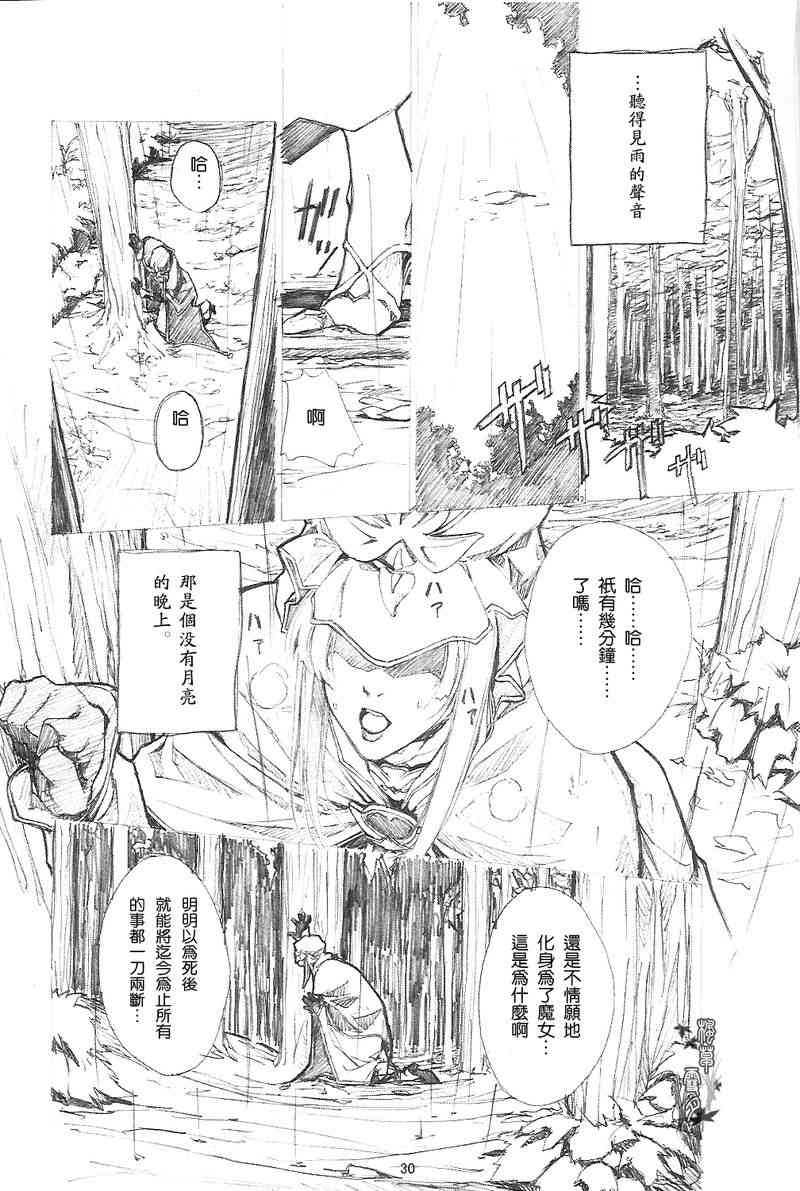 …聽得見雨的聲音
ザザザザ
啊
哈…
哈
哈……哈……
衹有幾分鐘……
了嗎……
ハァ
ハァ
ハァ
那是個没有月亮
的晚上。
還是不情願地
化身爲了魔女…
這是爲什麼啊
明明以爲死後
就能將迄今爲止所有
的事都一刀兩斷…
30